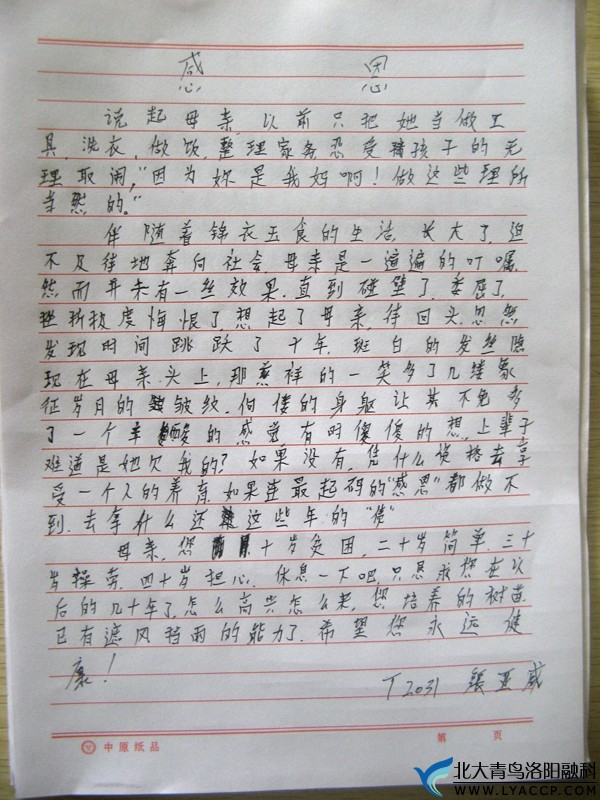 感 恩
说起母亲,以前只把她当做工
具,洗衣,做饭,整理家务忍受着孩子的无
理取闹,"因为妳是我妈啊!做这些理所
当然的。"
伴随着锦衣玉食的生活,长大了,迫
不及待地奔向社会,母亲是一遍遍的叮嘱,
然而并未有一丝效果.直到碰壁了,委屈了,
挫折较度悔恨了,想起了母亲,待回头,忽然
发现时间跳跃了十年,斑白的发丝隐
现在母亲头上,那慈祥的一笑多了几缕象
征岁月的皱纹.佝偻的身躯让其不免多
了一个辛酸的感觉 有时傻傻的想,上辈子
难道是她欠我的?如果没有,凭什么资格去享
受一个人的养育.如果连最起码的"感恩"都做不
到.去拿什么还这些年的"债"
母亲,您十岁贪困,二十岁简单.三十
岁操劳.四十岁担心.休息一下吧,只愿您在以
后的几十年了,怎么高兴怎么来,您培养的树苗
已有遮风挡雨的能力了.希望您永远健
康!
T2031 张亚威
中原纸品 第 页
北大青鸟洛阳融科
WWW.LYACCP.COM